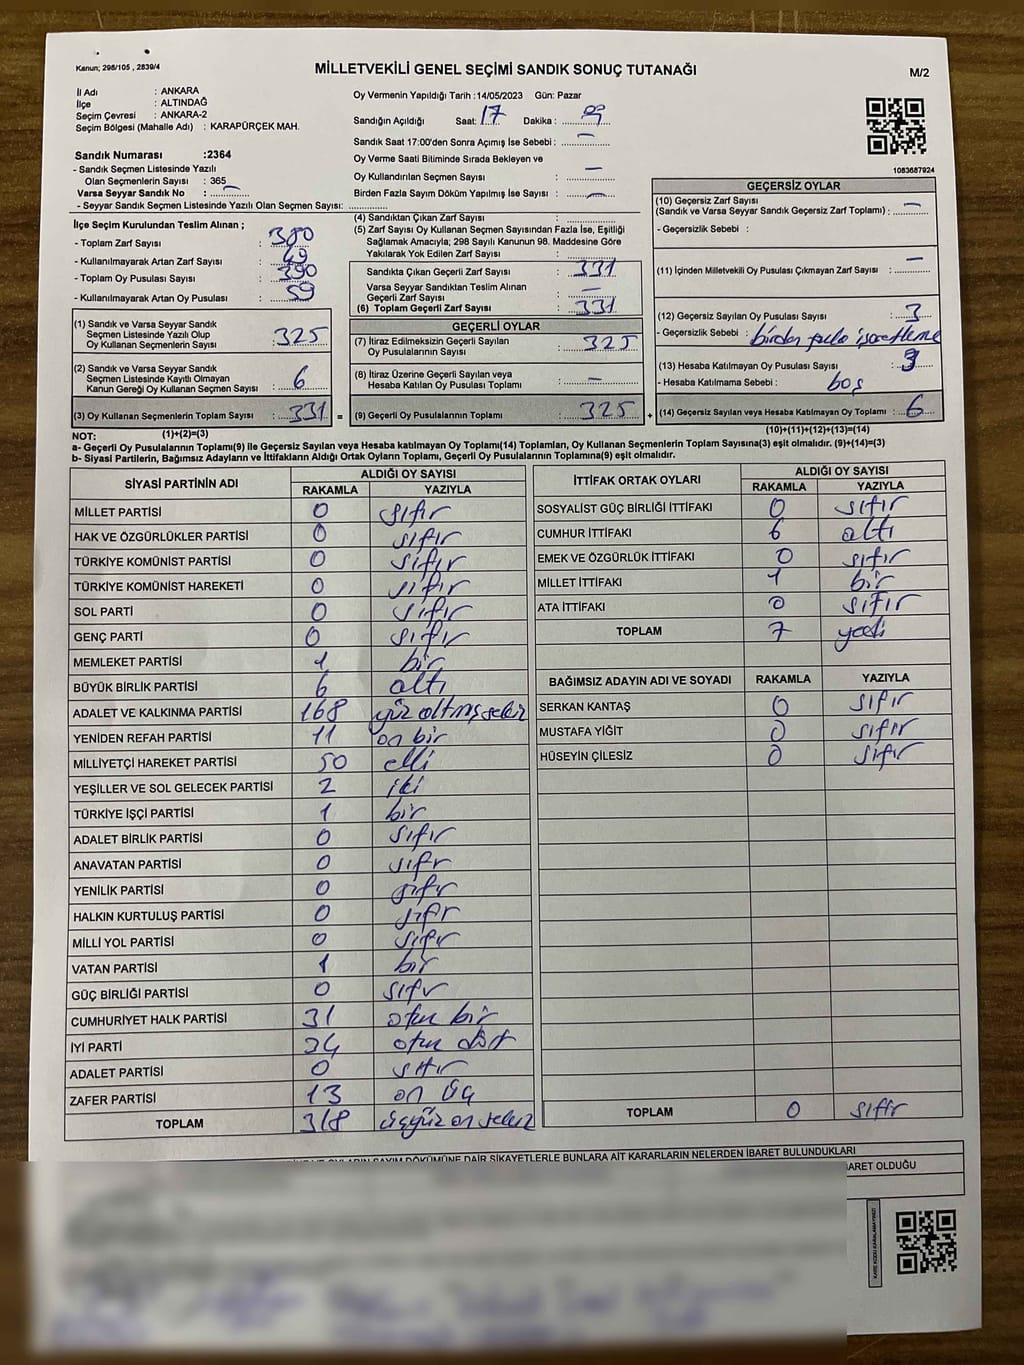 Kanun; 298/105 , 2839/4
MİLLETVEKİLİ GENEL SEÇİMİ SANDIK SONUÇ TUTANAĞI
M/2
İl Adı : ANKARA
İlçe : ALTINDAĞ
Seçim Çevresi : ANKARA-2
Seçim Bölgesi (Mahalle Adı) : KARAPÜRÇEK MAH.
Sandık Numarası :2364
- Sandık Seçmen Listesinde Yazılı
Olan Seçmenlerin Sayısı : 365
Varsa Seyyar Sandık No : —
- Seyyar Sandık Seçmen Listesinde Yazılı Olan Seçmen Sayısı:
Oy Vermenin Yapıldığı Tarih :14/05/2023 Gün: Pazar
Sandığın Açıldığı Saat: 17 Dakika :
Sandık Saat 17:00'den Sonra Açımış İse Sebebi : —
Oy Verme Saati Bitiminde Sırada Bekleyen ve
Oy Kullandırılan Seçmen Sayısı : —
Birden Fazla Sayım Döküm Yapılmış İse Sayısı : —
1083687924
İlçe Seçim Kurulundan Teslim Alınan ;
- Toplam Zarf Sayısı : 380
- Kullanılmayarak Artan Zarf Sayısı : 49
- Toplam Oy Pusulası Sayısı : 390
- Kullanılmayarak Artan Oy Pusulası : 59
(1) Sandık ve Varsa Seyyar Sandık
Seçmen Listesinde Yazılı Olup
Oy Kullanan Seçmenlerin Sayısı : 325
(2) Sandık ve Varsa Seyyar Sandık
Seçmen Listesinde Kayıtlı Olmayan
Kanun Gereği Oy Kullanan Seçmen Sayısı : 6
(3) Oy Kullanan Seçmenlerin Toplam Sayısı : 331 =
(1)+(2)=(3)
(4) Sandıktan Çıkan Zarf Sayısı :
(5) Zarf Sayısı Oy Kullanan Seçmen Sayısından Fazla İse, Eşitliği
Sağlamak Amacıyla; 298 Sayılı Kanunun 98. Maddesine Göre
Yakılarak Yok Edilen Zarf Sayısı :
Sandıkta Çıkan Geçerli Zarf Sayısı : 331
Varsa Seyyar Sandıktan Teslim Alınan
Geçerli Zarf Sayısı : —
(6) Toplam Geçerli Zarf Sayısı : 331
GEÇERLİ OYLAR
(7) İtiraz Edilmeksizin Geçerli Sayılan
Oy Pusulalarının Sayısı : 325
(8) İtiraz Üzerine Geçerli Sayılan veya
Hesaba Katılan Oy Pusulası Toplamı : —
(9) Geçerli Oy Pusulalarının Toplamı : 325 +
GEÇERSİZ OYLAR
(10) Geçersiz Zarf Sayısı
(Sandık ve Varsa Seyyar Sandık Geçersiz Zarf Toplamı) : —
- Geçersizlik Sebebi :
(11) İçinden Milletvekili Oy Pusulası Çıkmayan Zarf Sayısı : —
(12) Geçersiz Sayılan Oy Pusulası Sayısı : 3
- Geçersizlik Sebebi : birden fazla işaretleme
(13) Hesaba Katılmayan Oy Pusulası Sayısı : 3
- Hesaba Katılmama Sebebi : boş
(14) Geçersiz Sayılan veya Hesaba Katılmayan Oy Toplamı : 6
(10)+(11)+(12)+(13)=(14)
NOT:
a- Geçerli Oy Pusulalarının Toplamı(9) ile Geçersiz Sayılan veya Hesaba katılmayan Oy Toplamı(14) Toplamları, Oy Kullanan Seçmenlerin Toplam Sayısına(3) eşit olmalıdır. (9)+(14)=(3)
b- Siyasi Partilerin, Bağımsız Adayların ve İttifakların Aldığı Ortak Oyların Toplamı, Geçerli Oy Pusulalarının Toplamına(9) eşit olmalıdır.
SİYASİ PARTİNİN ADI ALDIĞI OY SAYISI
RAKAMLA YAZIYLA
MİLLET PARTİSİ 0 sıfır
HAK VE ÖZGÜRLÜKLER PARTİSİ 0 sıfır
TÜRKİYE KOMÜNİST PARTİSİ 0 sıfır
TÜRKİYE KOMÜNİST HAREKETİ 0 sıfır
SOL PARTİ 0 sıfır
GENÇ PARTİ 0 sıfır
MEMLEKET PARTİSİ 1 bir
BÜYÜK BİRLİK PARTİSİ 6 altı
ADALET VE KALKINMA PARTİSİ 168 yüz altmış sekiz
YENİDEN REFAH PARTİSİ 11 on bir
MİLLİYETÇİ HAREKET PARTİSİ 50 elli
YEŞİLLER VE SOL GELECEK PARTİSİ 2 iki
TÜRKİYE İŞÇİ PARTİSİ 1 bir
ADALET BİRLİK PARTİSİ 0 sıfır
ANAVATAN PARTİSİ 0 sıfır
YENİLİK PARTİSİ 0 sıfır
HALKIN KURTULUŞ PARTİSİ 0 sıfır
MİLLİ YOL PARTİSİ 0 sıfır
VATAN PARTİSİ 1 bir
GÜÇ BİRLİĞİ PARTİSİ 0 sıfır
CUMHURİYET HALK PARTİSİ 31 otuz bir
İYİ PARTİ 34 otuz dört
ADALET PARTİSİ 0 sıfır
ZAFER PARTİSİ 13 on üç
TOPLAM 318 üçyüz on sekiz
İTTİFAK ORTAK OYLARI ALDIĞI OY SAYISI
RAKAMLA YAZIYLA
SOSYALİST GÜÇ BİRLİĞİ İTTİFAKI 0 sıfır
CUMHUR İTTİFAKI 6 altı
EMEK VE ÖZGÜRLÜK İTTİFAKI 0 sıfır
MİLLET İTTİFAKI 1 bir
ATA İTTİFAKI 0 sıfır
TOPLAM 7 yedi
BAĞIMSIZ ADAYIN ADI VE SOYADI RAKAMLA YAZIYLA
SERKAN KANTAŞ 0 sıfır
MUSTAFA YİĞİT 0 sıfır
HÜSEYİN ÇİLESİZ 0 sıfır
TOPLAM 0 sıfır
OYLARIN SAYIM DÖKÜMÜNE DAİR ŞİKAYETLERLE BUNLARA AİT KARARLARIN NELERDEN İBARET BULUNDUKLARI
BARET OLDUĞU